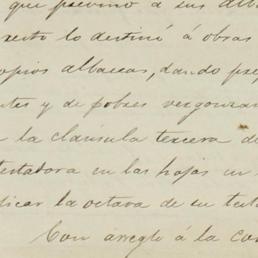 que previno a sus alba
resto lo destinó á obras
opios albaceas, dando pre
tes y de pobres vergonzan
la cláusula tercera de
testadora en las hojas en
dicar la octava de su test
Con arreglo á la con